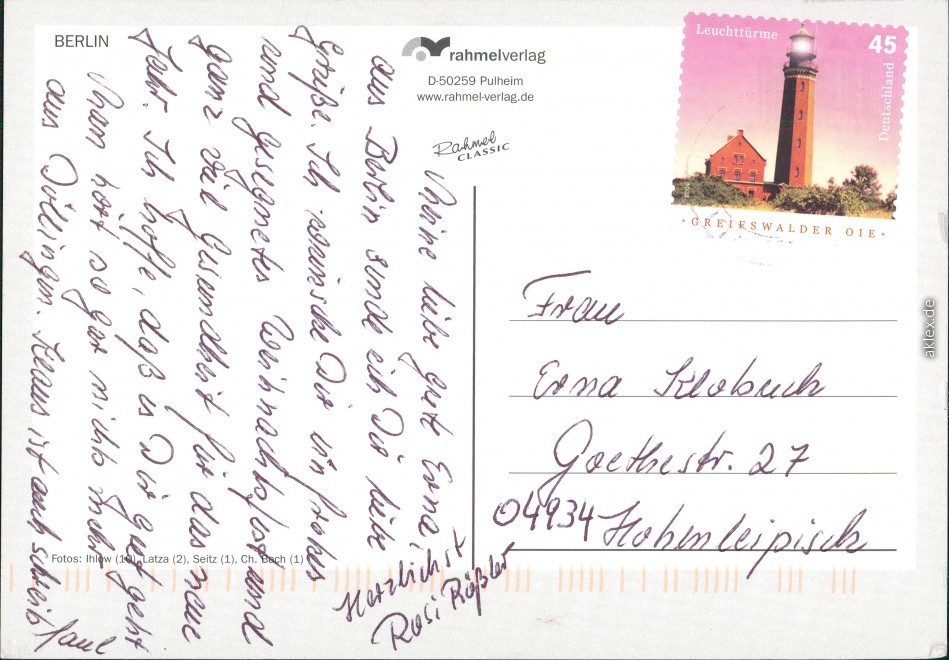 BERLIN
rahmelverlag
D-50259 Pulheim
www.rahmel-verlag.de
Rahmel
CLASSIC
Leuchttürme
45
Deutschland
• GREIFSWALDER OIE •
Meine liebe gute Erna,
aus Berlin sende ich Dir liebe
Grüße. Ich wünsche Dir ein frohes
und gesegnetes Weihnachtsfest und
ganz viel Gesundheit für das neue
Jahr. Ich hoffe, daß es Dir gut geht
Man hört so gar nichts mehr
aus Döllingen. Klaus ist auch schreib faul
Herzlichst
Rosi Rößler
Frau
Erna Klobuch
Goethestr. 27
04934 Hohenleipisch
Fotos: Ihlow (10), Latza (2), Seitz (1), Ch. Bach (1)
aklex.de